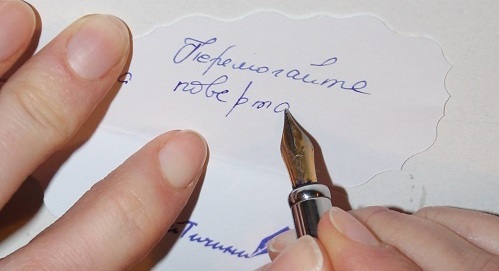 Перемагайте
поверта
а
Тичини